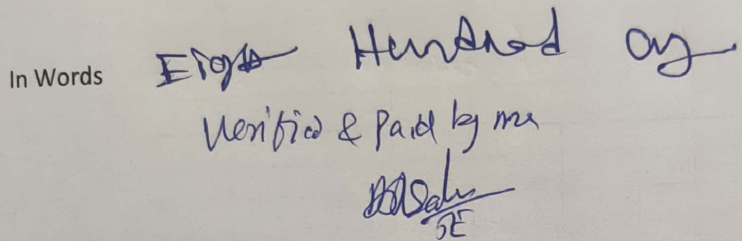 In Words Eight Hundred only
Verified & Paid by me
SE